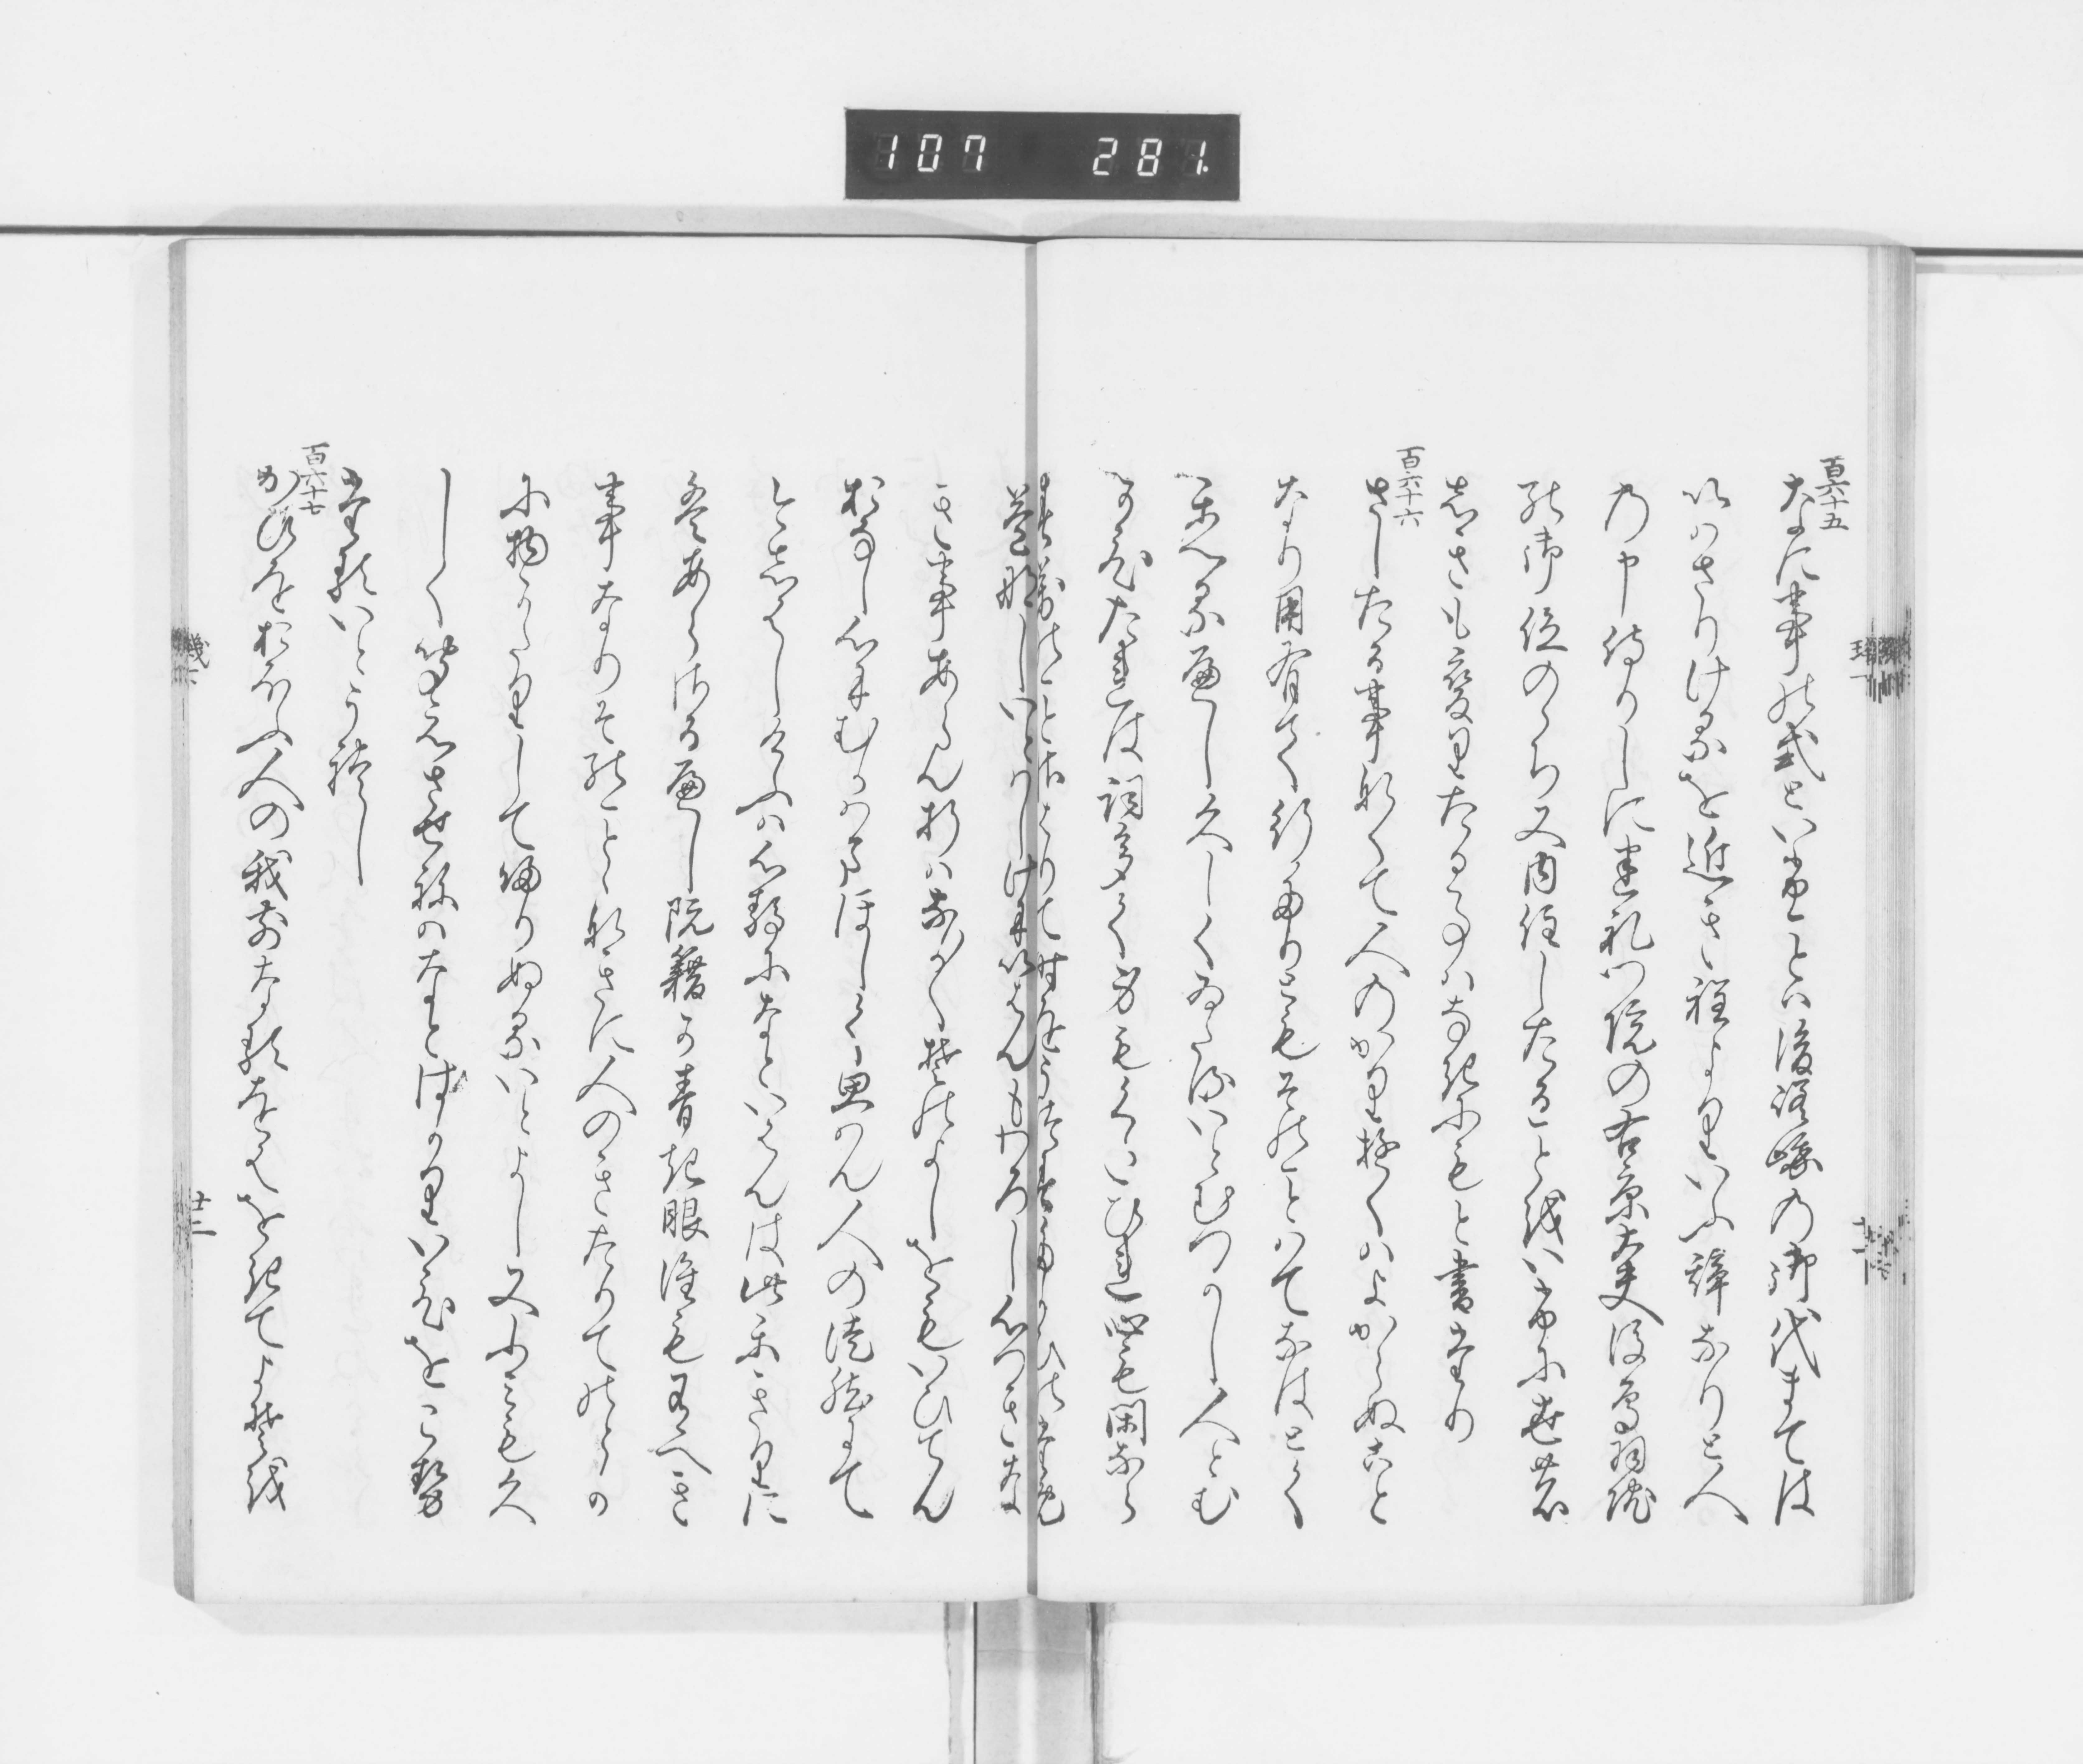 百六十五
なに事の式といふことは後嵯峨の御代まては
いはさりけるを近き程よりいふ詞なりと人
の申侍りしに建礼門院の右京大夫後鳥羽院
の御位のゝち又内住したることをいふに世の
しきもかはりたることはなきにもと書たり
百六十六
さしたる事なくて人のかり行くはよからぬこと
なり用有て行たりともそのことはてなはとく
かへるへし久しくゐたるいとむつかし人とむ
かひたれは詞多く身もくたひれ心も閑なら
す萬のことさはりて時をうつすたかひのため
益なしいとはしけにいはんもわろし心つきな
き事あらん折はなか〱そのよしをもいひてん
おなし心にむかはまほしく思はん人の徒然にて
今しはしけふは心静になといはんは此かきりに
はあらさるへし阮籍か青き眼誰も有へき
事なりそのことゝなきに人のきたりてのとか
に物かたりして帰りぬるいとよし又ふみも久
しく聞えさせねはなとはかりいひをこせ
たるいとうれし
百六十七
かひをおほふ人の我前なるをはをきてよそを
廿二
107 281